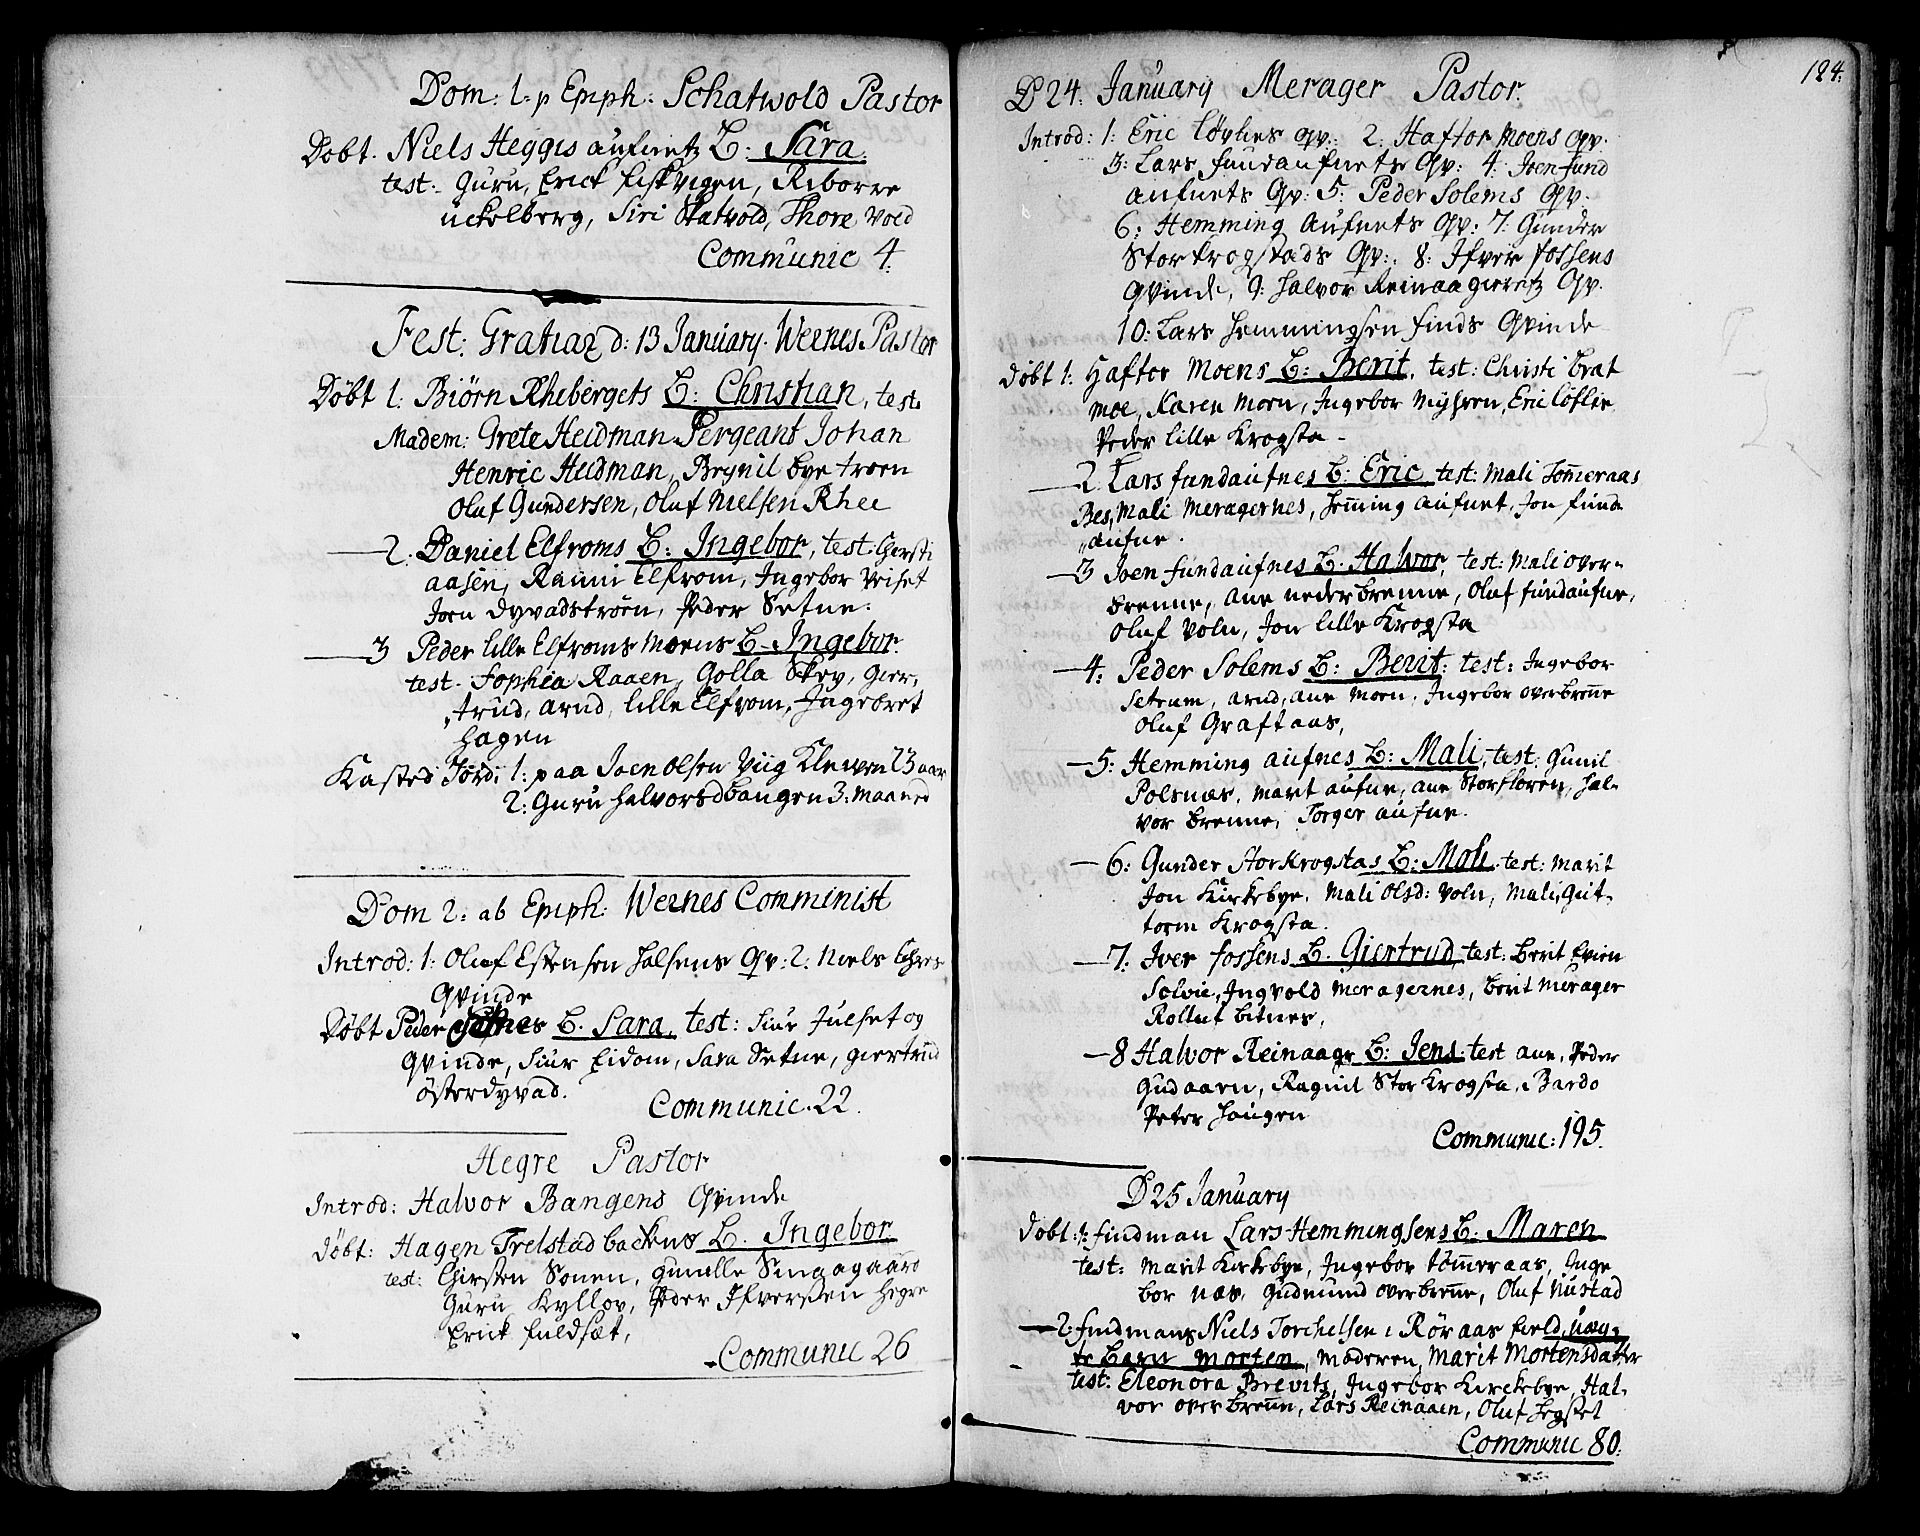 Dom: 1. p Epiph: Schatwold Pastor
Døbt. Niels Heggis aufnetz B: Sara.
test: Guru, Erick fiskvigen, Riborre
uckelberg, Siri Skatvold, Thore Vold
Communic 4.
Fest: Gratiar d: 13 January. Wernes Pastor
Døbt 1. Biørn Rhebergets B: Christian, test.
Madem: Grete Heidman Sergeant Johan
Henric Heidman, Brynil bye troen
Oluf Gundersen, Oluf Nielsen Rhee
2. Daniel Elfroms B: Ingebor, test. Chersti
aasen, Ranni Elfrom, Ingebor Veiset
Joen dyvadstrøen, Peder Setne.
3 Peder lille Elfroms Moens B. Ingebor.
test. Sophia Raaen, Golla Skey, Gier,
trud, Arnd, lille Elfrom, Ingebret
Hagen
Kasted Jord: 1: paa Joen Olsen Viig Klewen 23 aar
2: Guru Halvorsd bangen 3: Maaned
Dom 2: ab Epiph: Wernes Comminist
Introd: 1: Oluf Estensen Halsens Qv: 2: Niels
Qvinde
Døbt Peder B. Sara, test: Siur Julset og
Qvinde, Siur Eidom, Sara Setne, Giertrud
østerdyvad.
Communic. 22.
Hegre Pastor
Introd: Halvor Bangens Qvinde
Døbt: Hagen Trelstad backens B. Ingebor
test: Chirsten Sonen, Gunille Singsgaard
Guru Kyllov, Peder Ifversen Hegre
Erick fuldsæt,
Communic 26
124.
D 24. January Merager Pastor.
Introd: 1: Eric løvlies Qv: 2: Haftor Moens Qv.
3: Lars fundaufnets Qv: 4: Joen fund
aufnets Qv: 5: Peder Solems Qv.
6: Hemming Aufnets Qv: 7: Gunder
Storkrogstads Qv: 8: Ifver fossens
Qvinde, 9: Halvor Reinaagieretz Qv.
10: Lars Hemmingsen finds Qvinde
Døbt 1: Haftor Moens B: Berit, test: Christi brat
moe, Karen Moen, Ingebor Nyhren, Eric løflie
Peder lille Krogsta.
2. Lars fundaufnes B: Eric test: Mali Tommeraas
Bes, Mali Meragernes, Hemming aufnet, Jon fund
aufne.
3 Joen fundaufnes B. Halvor, test: Mali over-
brenne, Ane nederbrenne, Oluf fundaufne,
Oluf Voln, Jon lille Krogsta
4: Peder Solems B: Berit: test: Ingebor
Setrum, arnd, ane Moen, Ingebor overbrenne
Oluf Graftaas,
5: Hemming aufnes B: Mali, test: Gunil
Polsnæs, Marit aufne, ane Storfloren, Hal-
vor brenne, Torger aufne.
6: Gunder Storkrogstas B: Mali test: Marit
Jon Kirkebye, Mali Olsd: Voln, Mali, Gut-
torm Krogsta.
7. Iver fossens B. Giertrud, test: berit Evien
Solvie, Ingvold Meragernes, berit Merager
Rolluf bitnes,
8 Halvor Reinaage B: Jens test ane, Peder
Gudaaen, Ragnil Storkrogsta, Bardo
Peter Haugen
Communic: 195.
D 25 January
Døbt 1: findman Lars Hemmingsens B. Maren
test: Marit Kirkebye, Ingebor tømmeraas, Inge
bor næs, Gudmund overbrenne, Oluf Nustad
2: findmans Niels Torchelsen i Røraas field, uæg-
te Barn Morten, Moderen, Marit Mortensdatter
test: Eleonora Brevits, Ingebor Kirckebye, Hal-
vor overbrenne, Lars Reinaaen, Oluf Hegset
Communic 80.